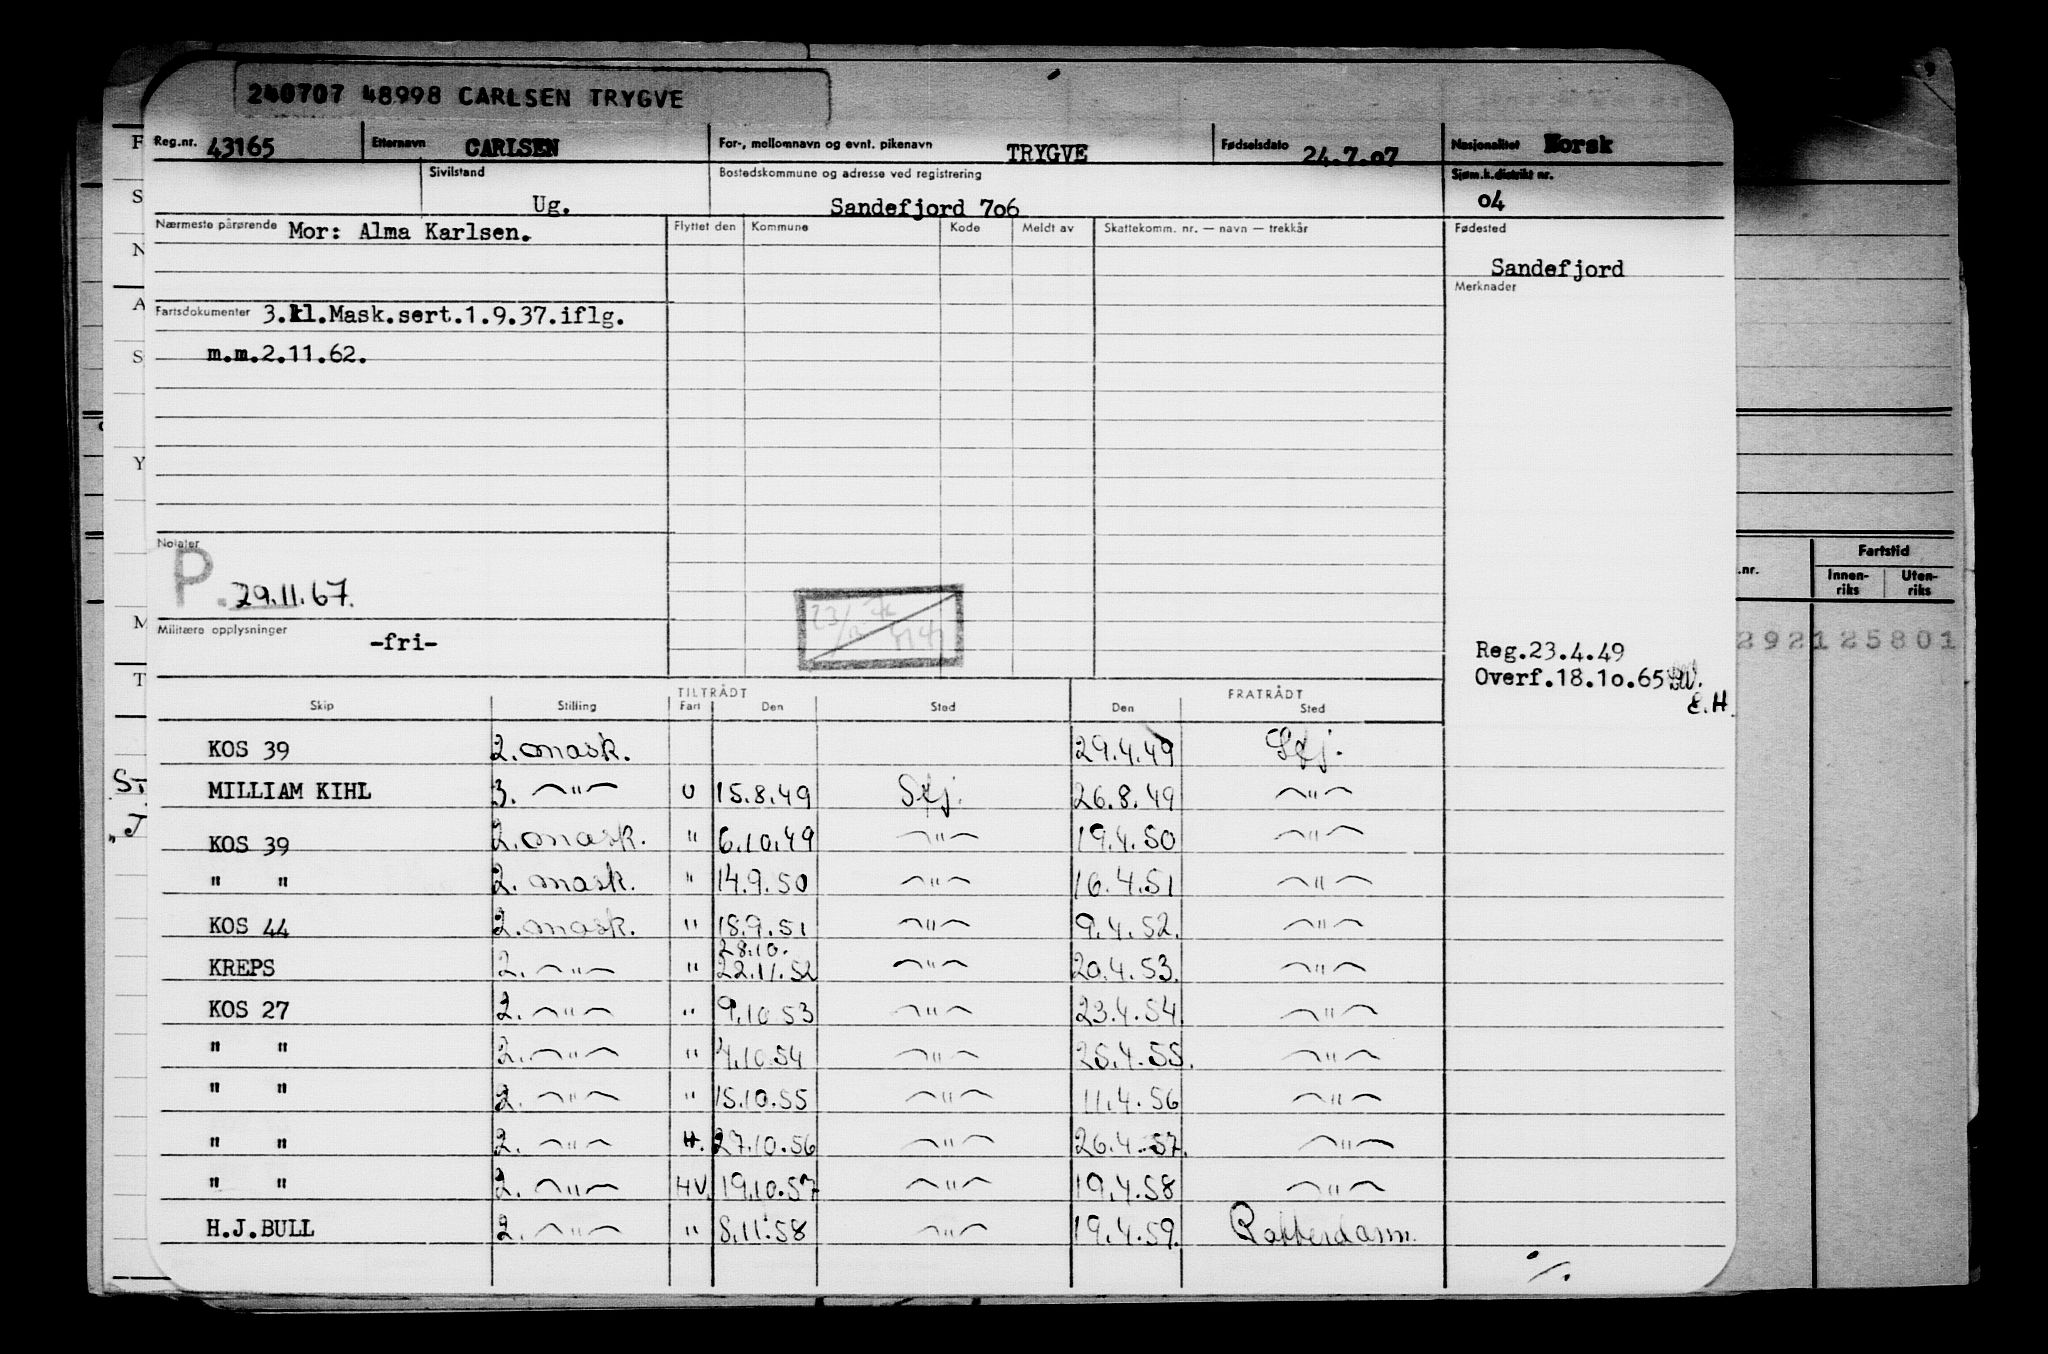 240707 48998 CARLSEN TRYGVE
Reg.nr. 43165 Etternavn CARLSEN For-, mellomnavn og evnt. pikenavn TRYGVE Fødselsdato 24.7.07 Nasjonalitet Norsk
Sivilstand Ug. Bostedskommune og adresse ved registrering Sandefjord 706 Sjøm.k.distrikt nr. 04
Nærmeste pårørende Mor: Alma Karlsen. Flyttet den Kommune Kode Meldt av Skattekomm. nr. — navn — trekkår Fødested
Sandefjord
Merknader
Fartsdokumenter 3.kl.Mask.sert.1.9.37.iflg.
m.m.2.11.62.
Notater
P. 29.11.67.
Militære opplysninger -fri-
Reg.23.4.49
Overf.18.10.65
E.H.
TILTRÅDT FRATRÅDT
Skip Stilling Fart Den Sted Den Sted
KOS 39 2. mask. 29.4.49 Sfj.
MILLIAM KIHL 3. —"— U 15.8.49 Sfj. 26.8.49 —"—
KOS 39 2. mask. " 6.10.49 —"— 19.4.50 —"—
" " 2. mask. " 14.9.50 —"— 16.4.51 —"—
KOS 44 2. mask. " 18.9.51 —"— 9.4.52. —"—
28.10.
KREPS 2. —"— " 22.11.52 —"— 20.4.53. —"—
KOS 27 2. —"— " 9.10.53 —"— 23.4.54. —"—
" " 2. —"— " 4.10.54 —"— 25.4.55. —"—
" " 2. —"— " 15.10.55 —"— 11.4.56 —"—
" " 2. —"— H. 27.10.56 —"— 26.4.57. —"—
" " 2. —"— HV. 19.10.57 —"— 19.4.58 —"—
H.J.BULL 2. —"— " 8.11.58 —"— 19.4.59. Rotterdam.
./.
F
S
N
A
S
Y
M
T
.nr. Fartstid
Innen-riks Uten-riks
292125801